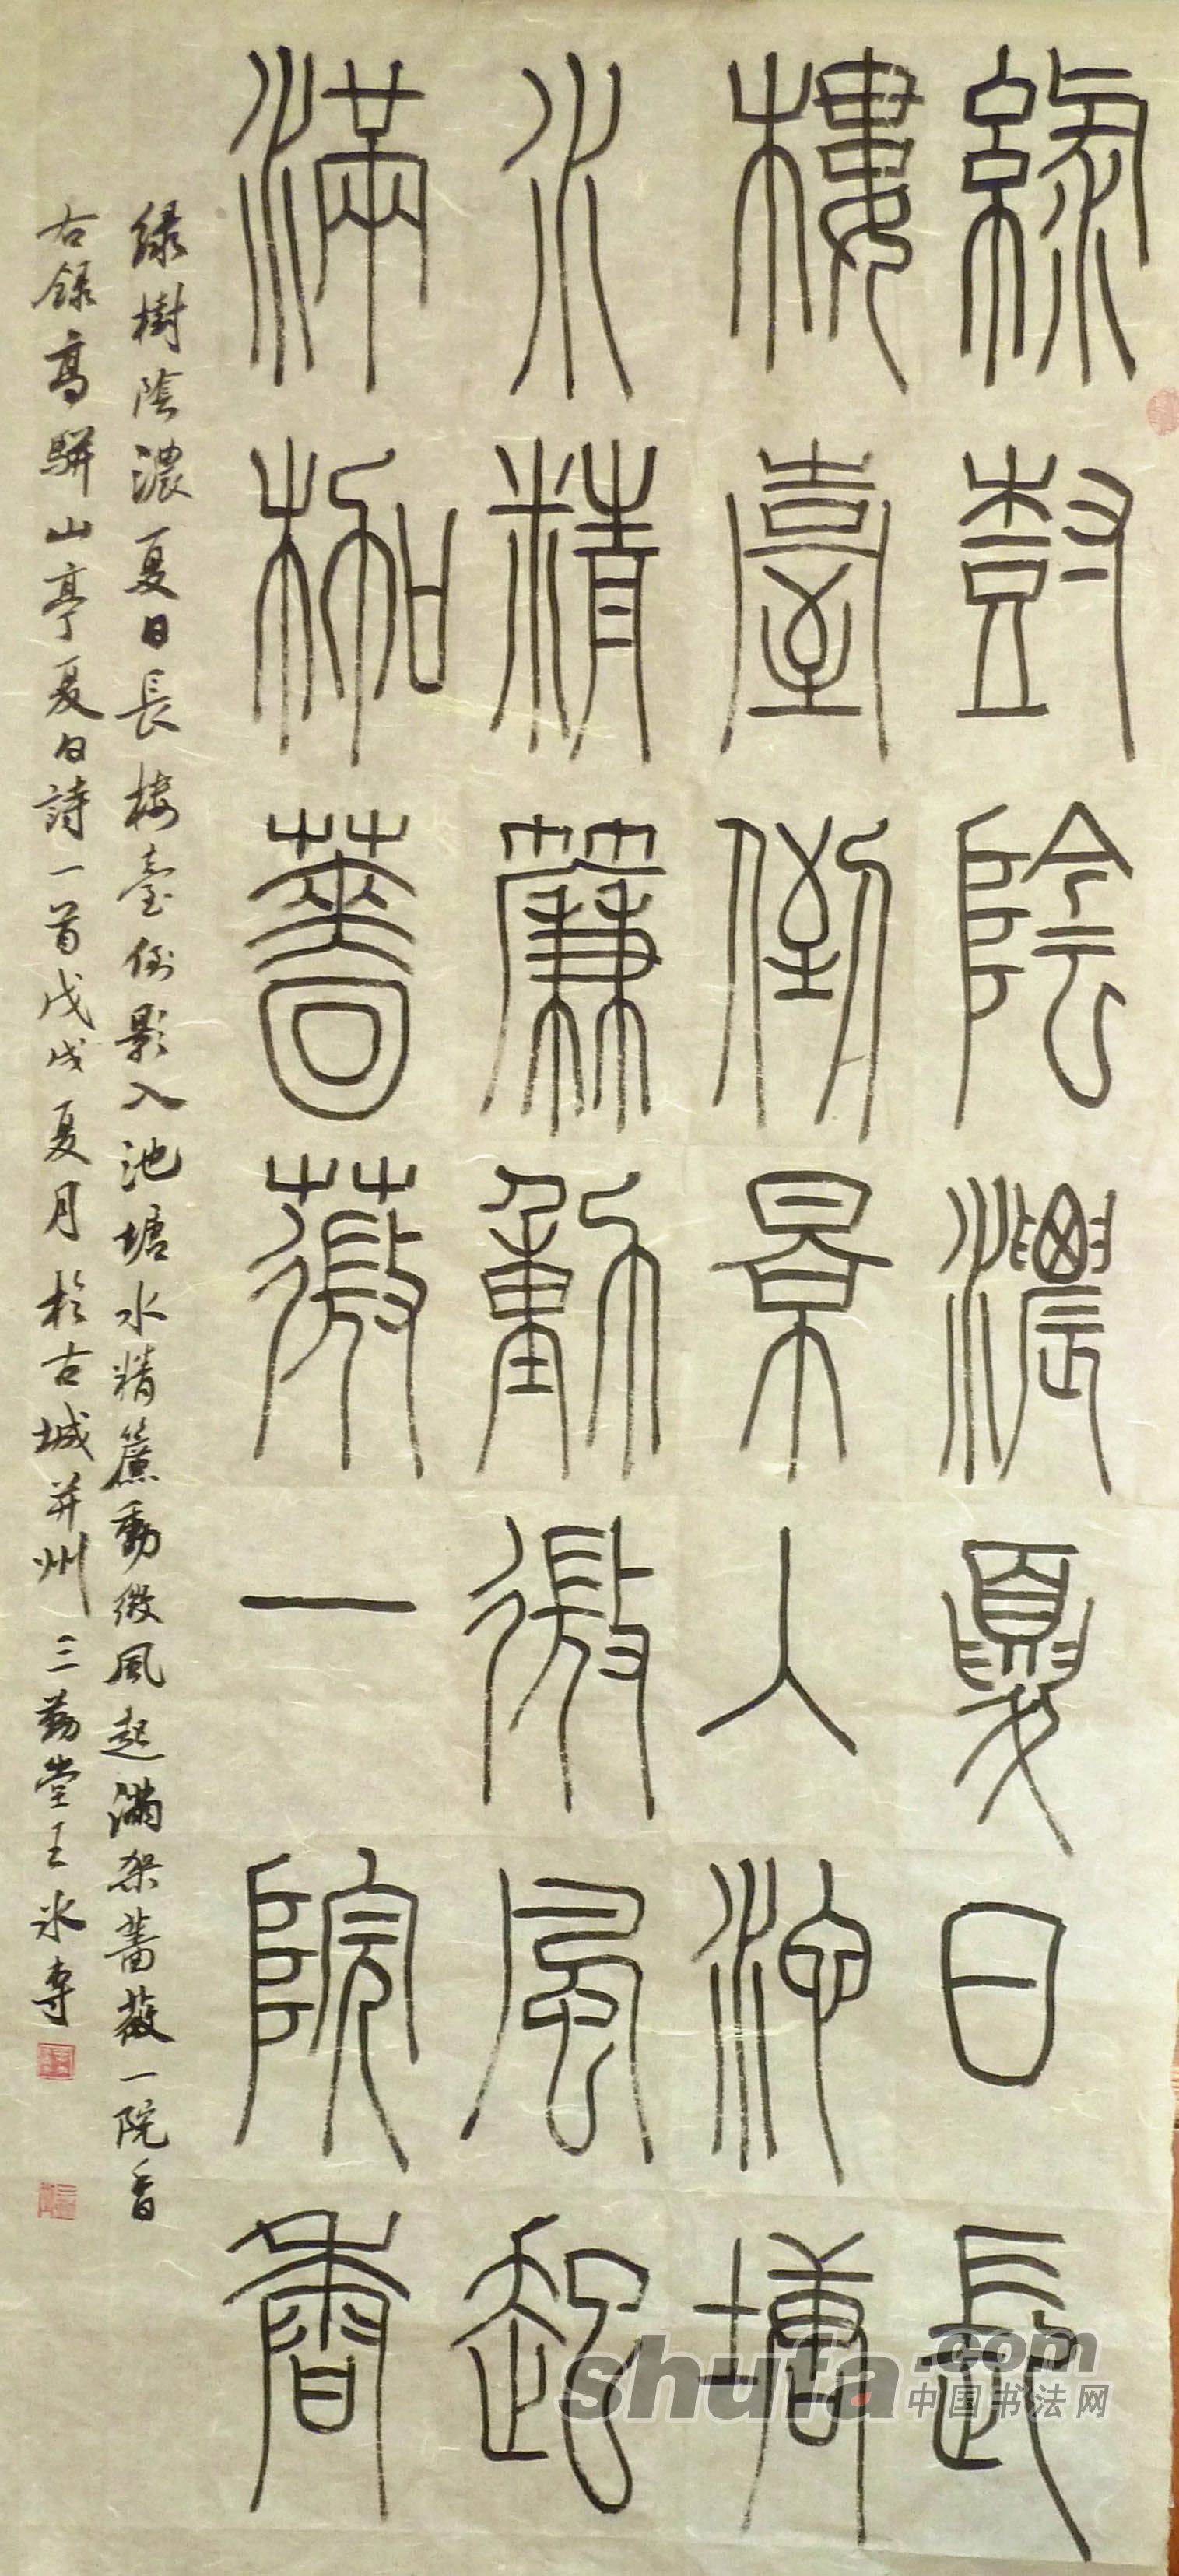 綠尌陰濃夏日長
樓臺倒景入池塘
水精簾動微風起
滿架薔薇一院香
绿樹陰濃夏日長楼臺倒影入池塘水精簾動微風起满架薔薇一院香
右錄高駢山亭夏日詩一首戊戌夏月於古城并州三勤堂王冰専
shufa.com
中国书法网